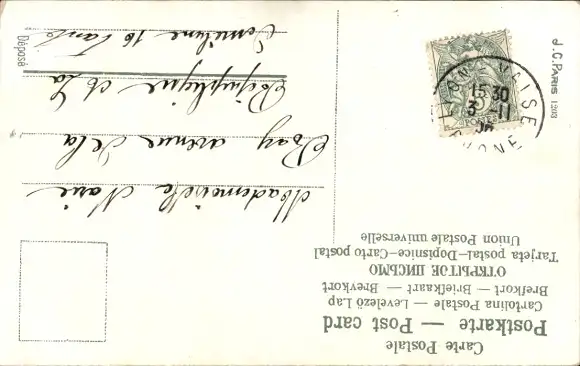 Carte Postale
Postkarte — Post card
Cartolina Postale — Levelező Lap
Brefkort — Briefkaart — Brevkort
ОТКРЫТОЕ ПИСЬМО
Tarjeta postal—Dopisnice—Carto postal
Union Postale universelle
Mademoiselle Marie
Ray avenue de la
République et la
16
Déposé
J.C. PARIS 1903
15 30
3 -11